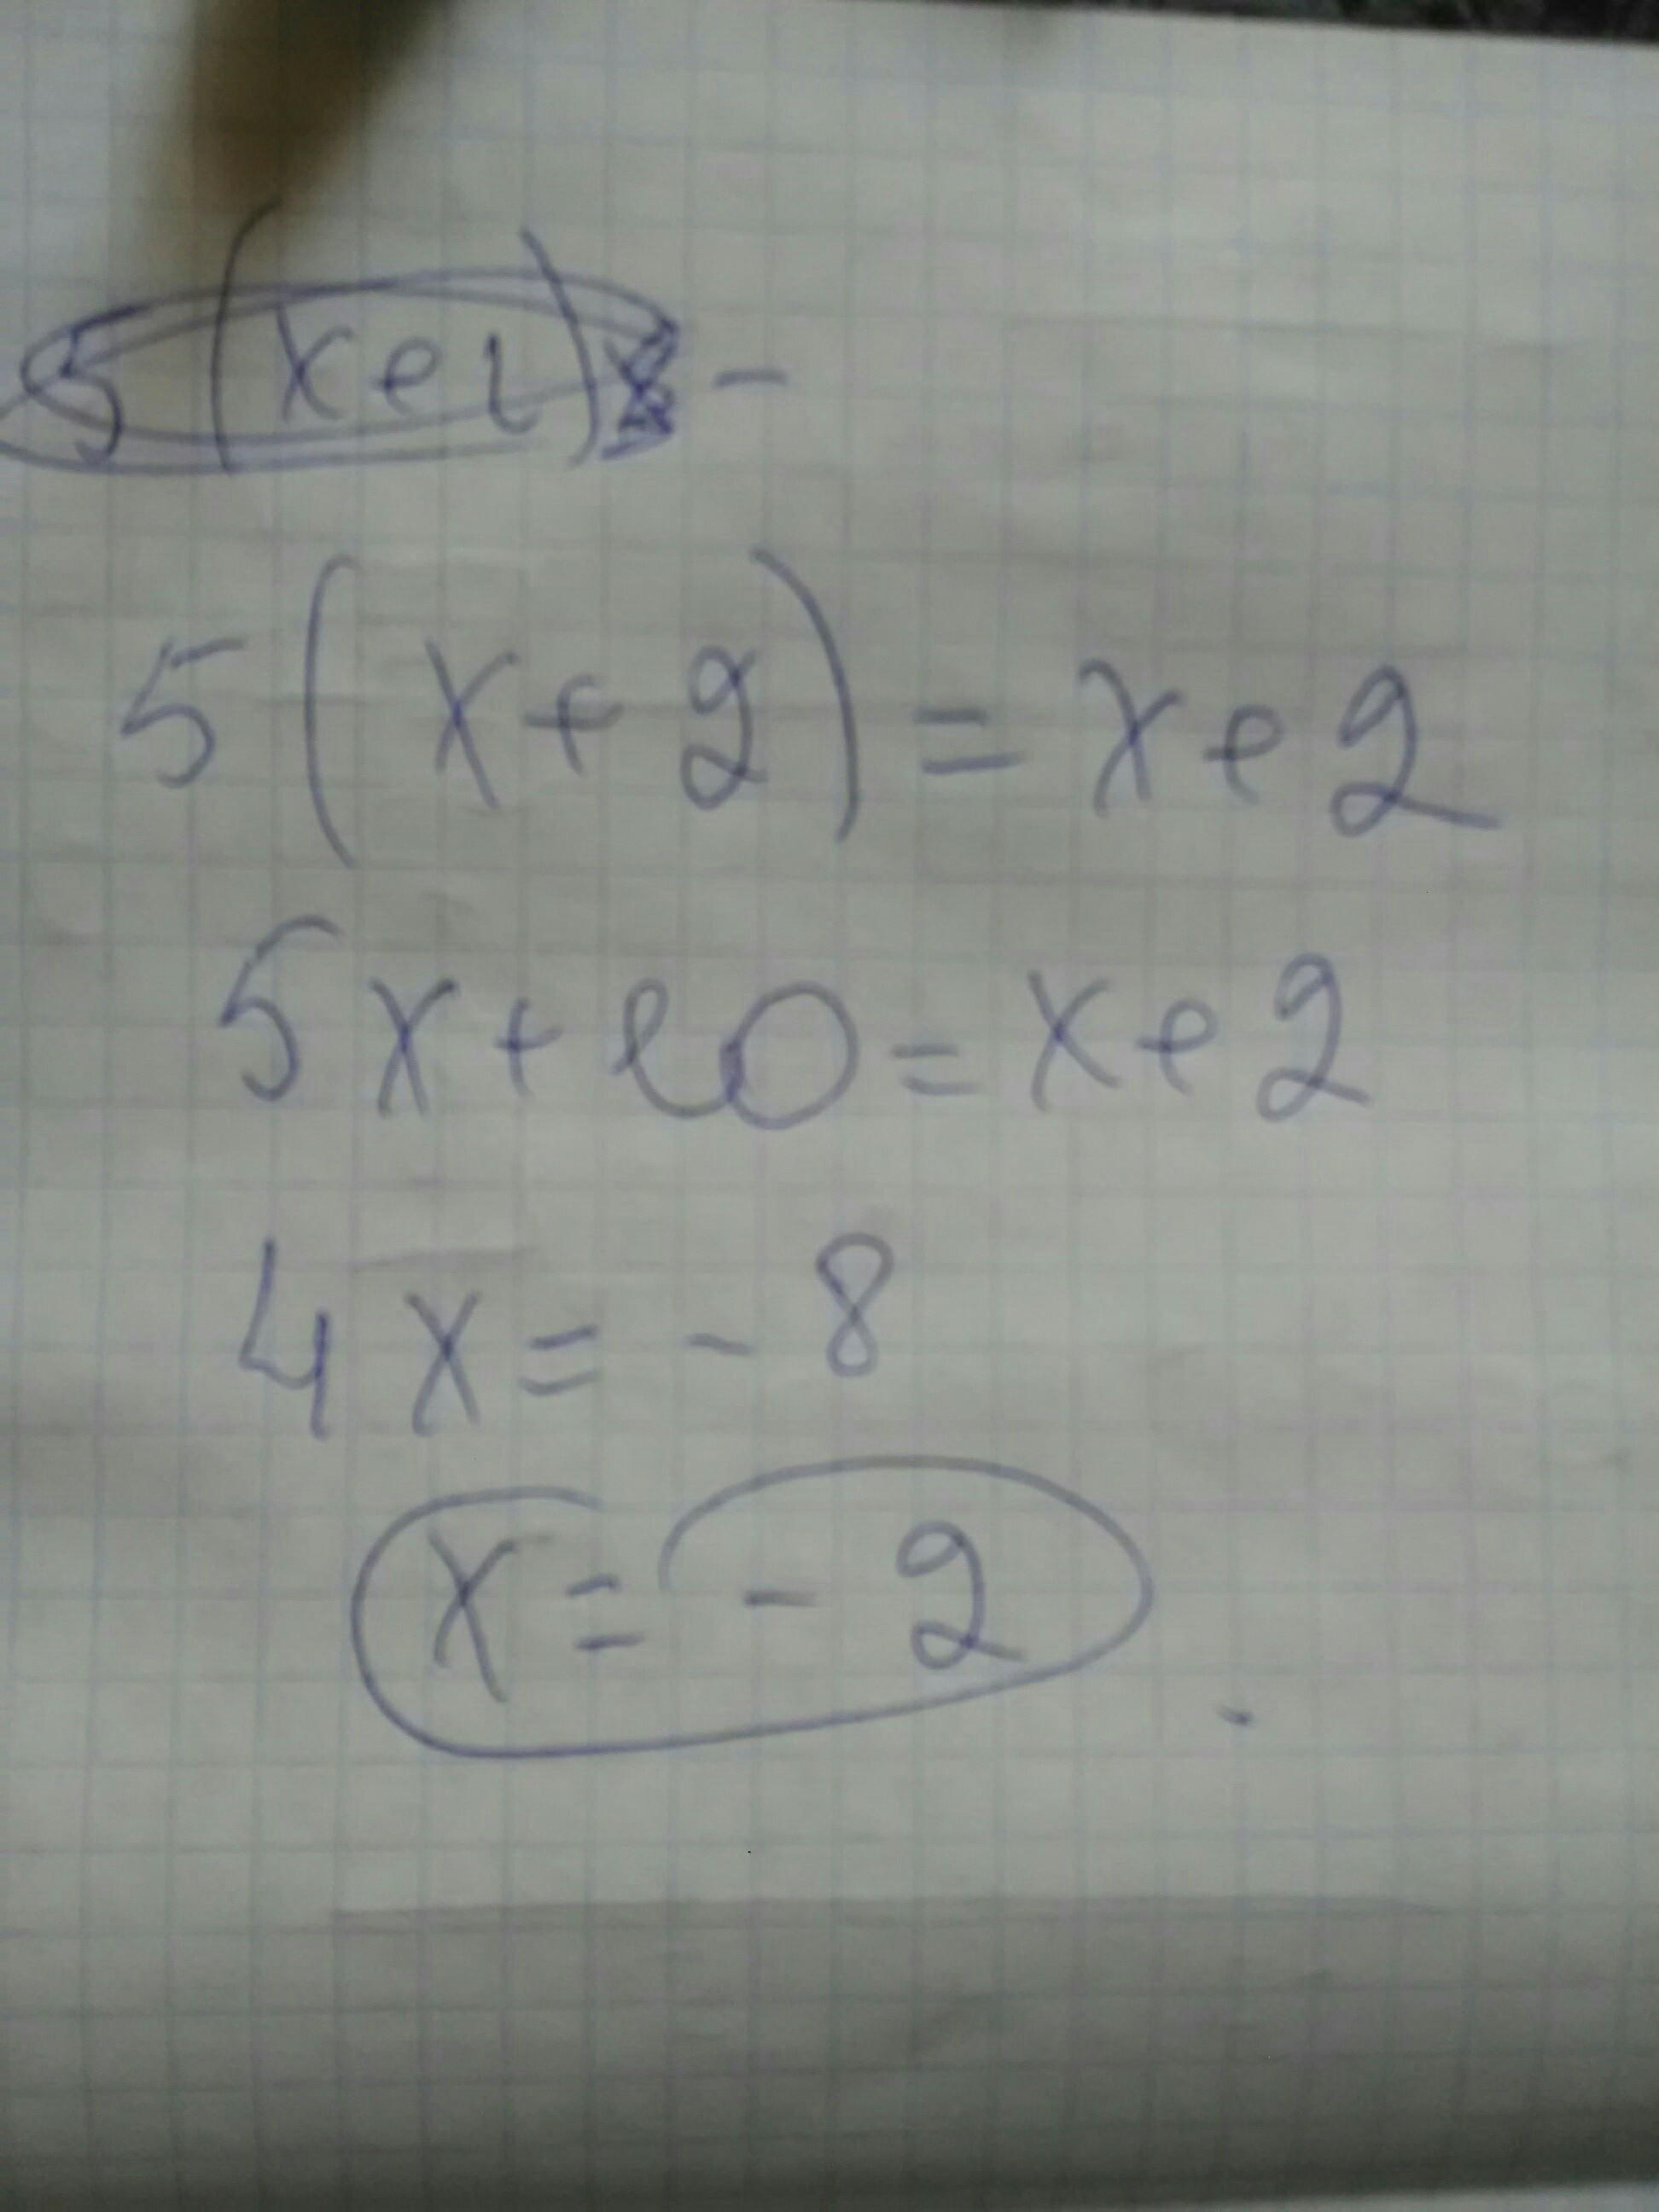 5(x+2)=x+2
5x+10=x+2
4x=-8
x=-2